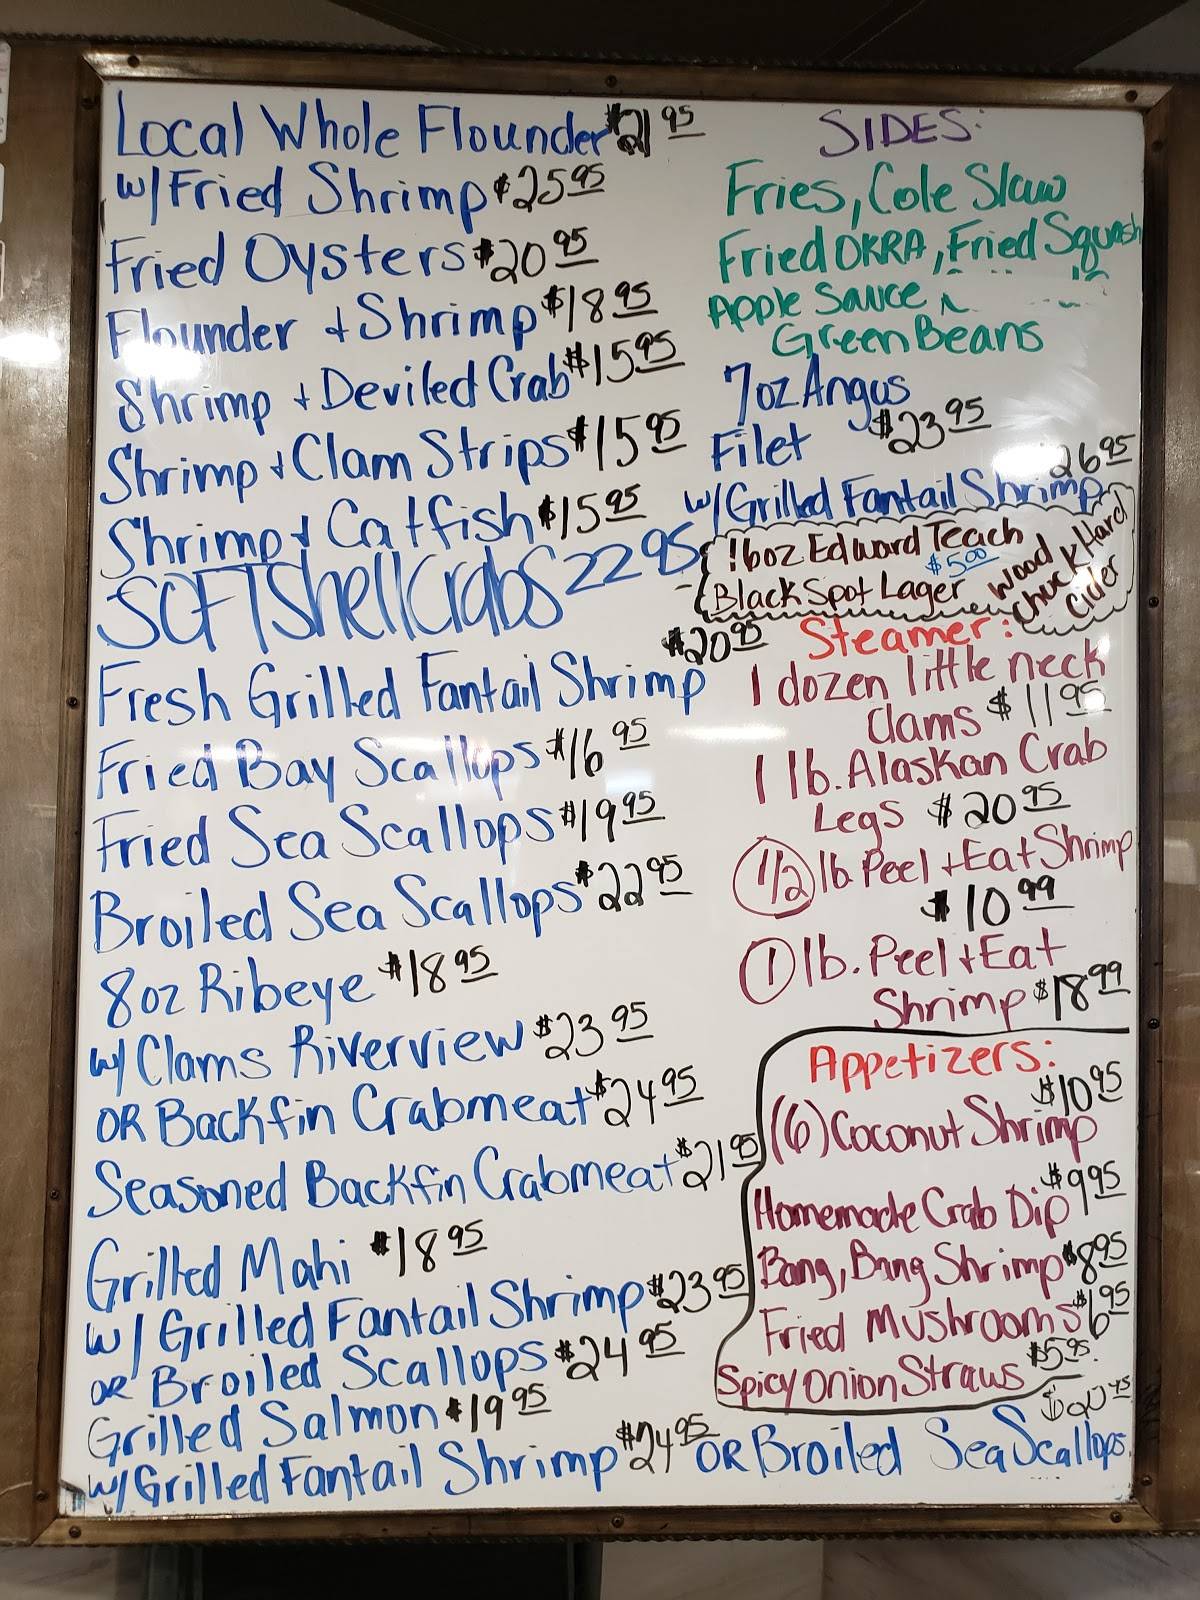 Local Whole Flounder $21 95
w/ Fried Shrimp $25 95
Fried Oysters $20 95
Flounder + Shrimp $18 95
Shrimp + Deviled Crab $15 95
Shrimp + Clam Strips $15 95
Shrimp + Catfish $15 95
SOFTShellCrabs 22 95
$20 95
Fresh Grilled Fantail Shrimp
Fried Bay Scallops $16 95
Fried Sea Scallops $19 95
Broiled Sea Scallops $22 95
8oz Ribeye $18 95
w/ Clams Riverview $23 95
OR Backfin Crabmeat $24 95
Seasoned Backfin Crabmeat $21 95
Grilled Mahi $18 95
w/ Grilled Fantail Shrimp $23 95
OR Broiled Scallops $24 95
Grilled Salmon $19 95
w/ Grilled Fantail Shrimp $24 95 OR Broiled Sea Scallops
SIDES:
Fries, Cole Slaw
Fried OKRA, Fried Squash
Apple Sauce
Green Beans
7oz Angus
Filet $23 95
26 95
w/ Grilled Fantail Shrimp
16oz Edward Teach
$5.00
Black Spot Lager
Wood
chuck Hard
Cider
Steamer:
1 dozen little neck
Clams $11 95
1 lb. Alaskan Crab
Legs $20 95
1/2 lb. Peel + Eat Shrimp
$10 99
1 lb. Peel + Eat
Shrimp $18 99
Appetizers:
$10 95
(6) Coconut Shrimp
$9 95
Homemade Crab Dip
Bang, Bang Shrimp $8 95
Fried Mushrooms $6 95
Spicy Onion Straws $5.95.